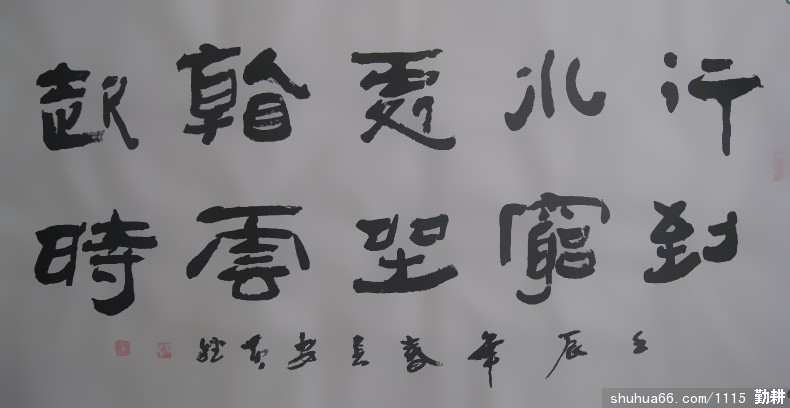 行到
水窮
處坐
看雲
起時
壬辰年春
shuhua66.com/1115 勤耕